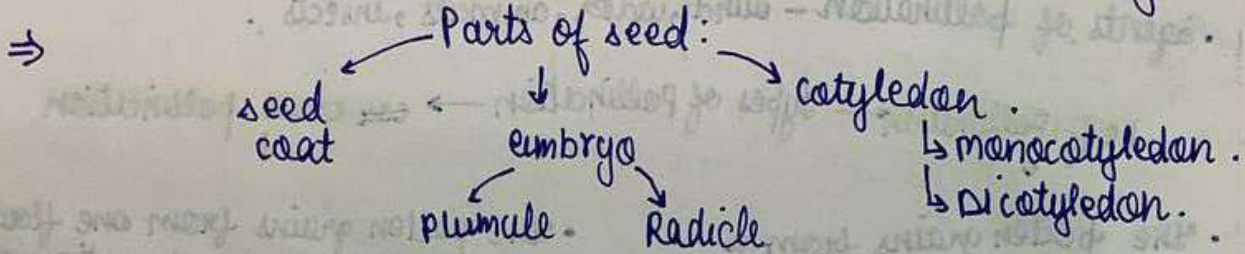 ⇒ Parts of seed:
seed coat
embryo
plumule.
Radicle
cotyledon.
↳ monocotyledon.
↳ Dicotyledon.